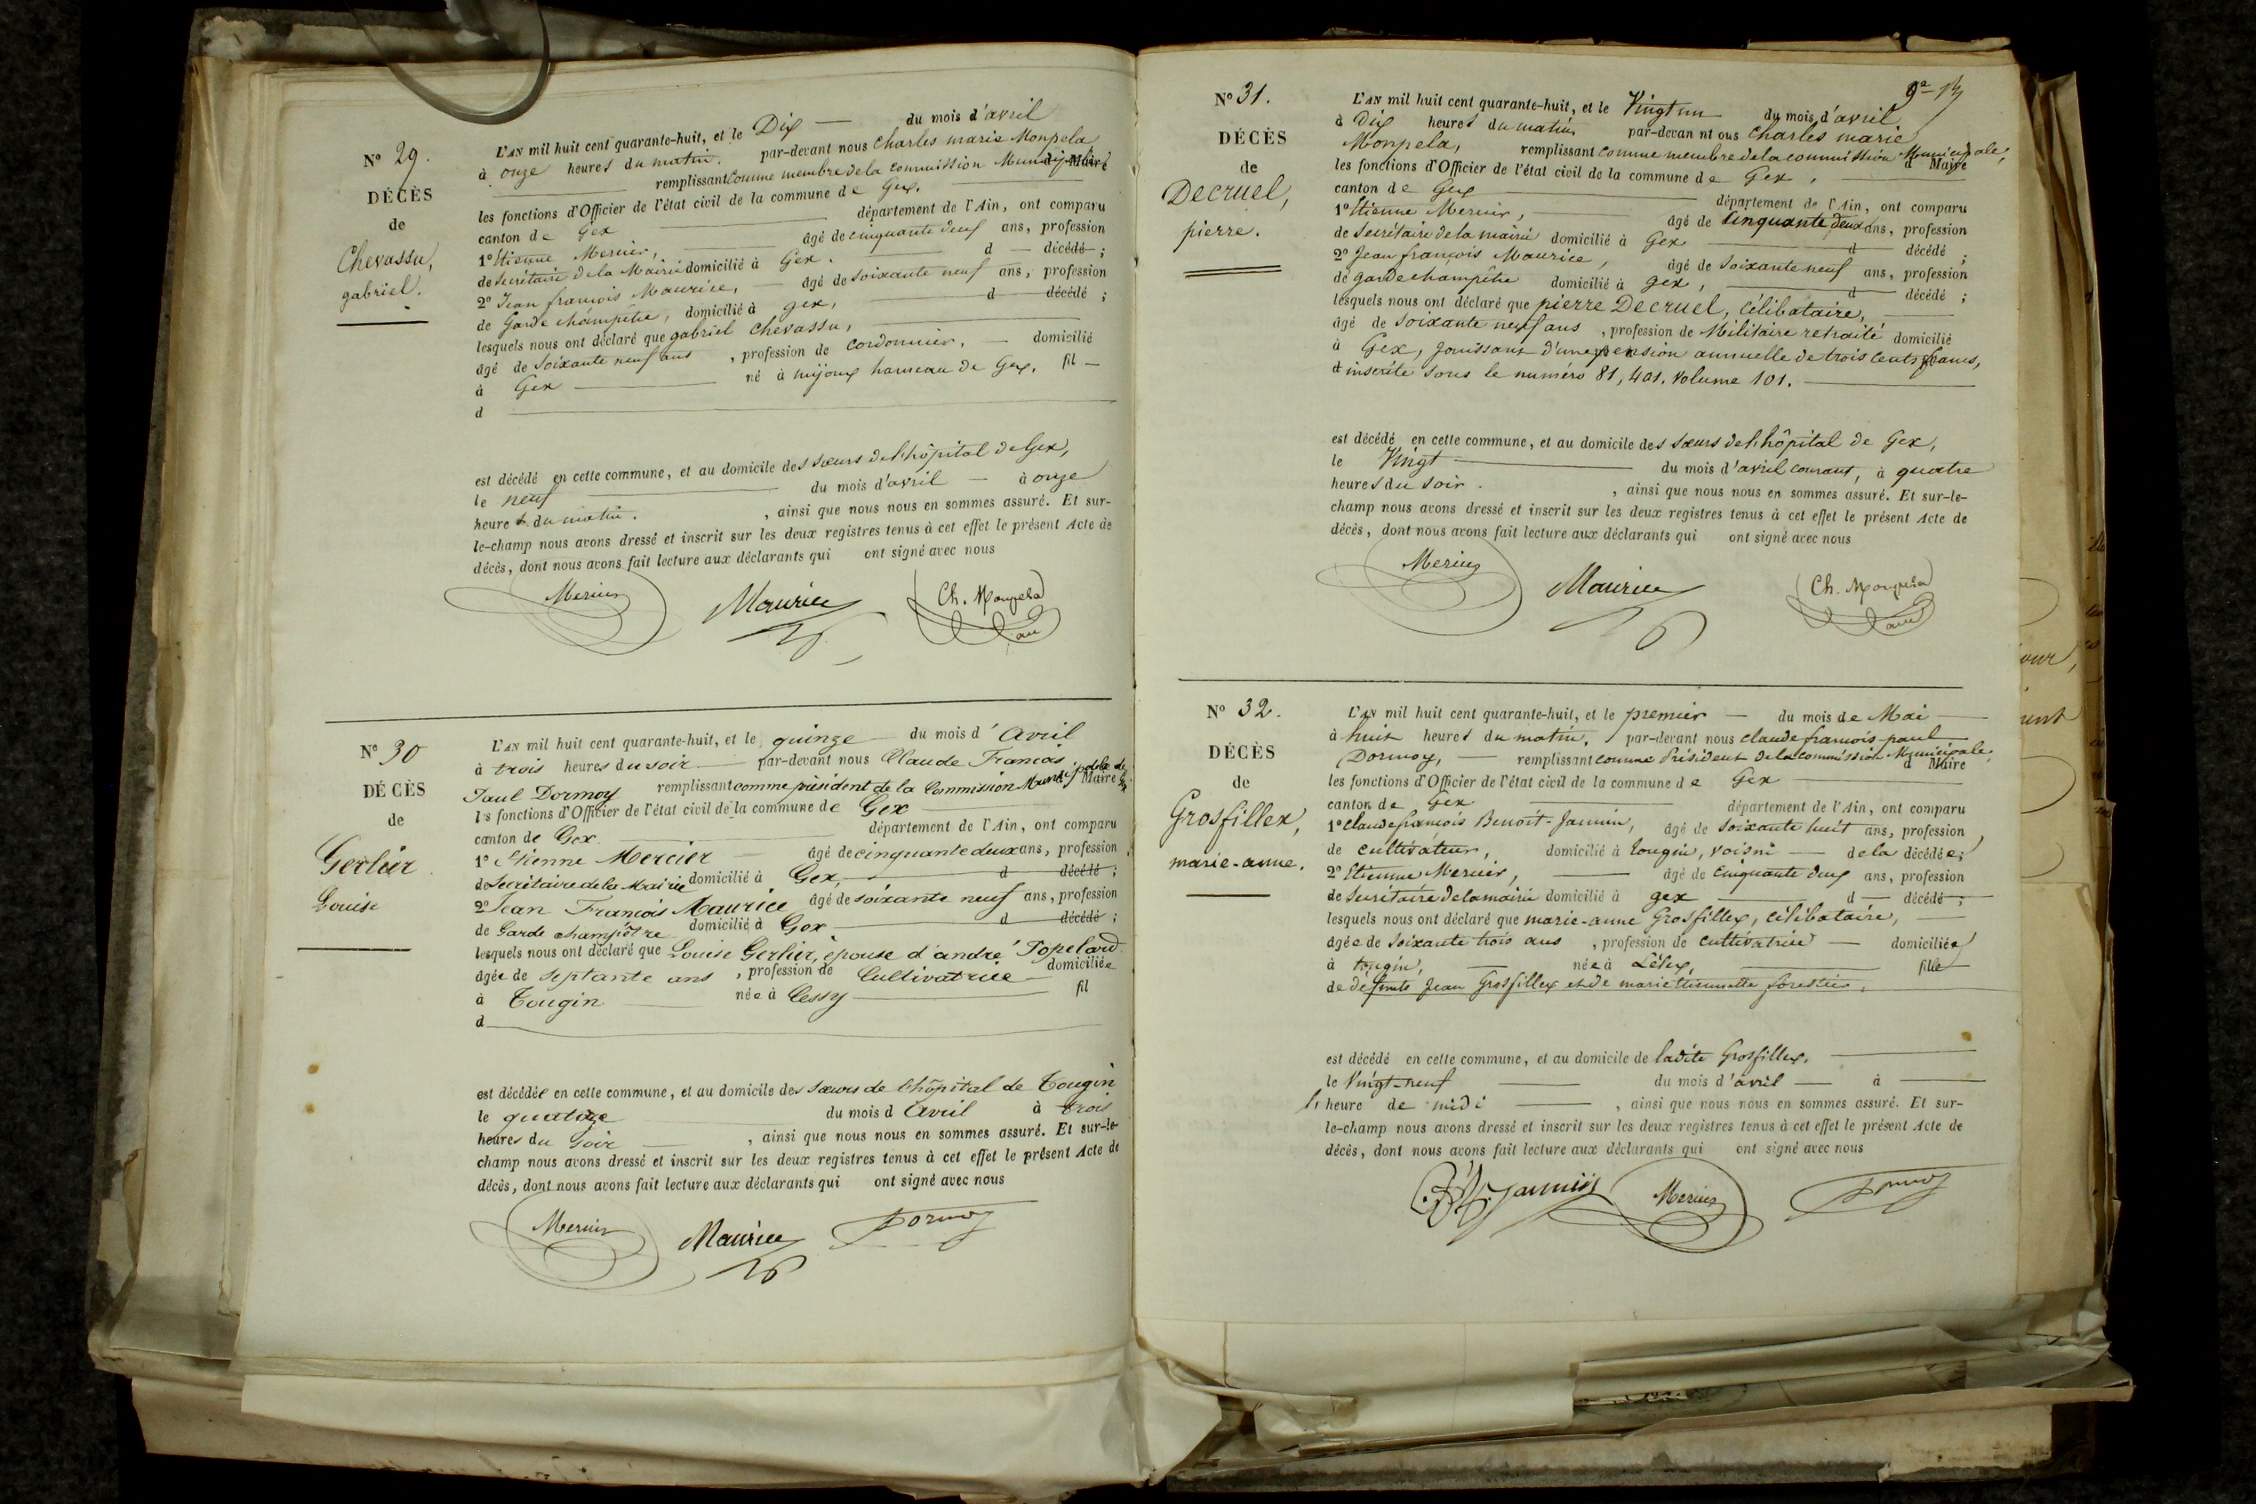 Nº 29.
DÉCÈS
de
Chevassu,
gabriel.
L'AN mil huit cent quarante-huit, et le Dix du mois d'avril
à onze heures du matin. par-devant nous Charles marie Monpela
remplissant comme membre de la commission Municipale d Maire
les fonctions d'Officier de l'état civil de la commune de Gex.
canton de Gex département de l'Ain, ont comparu
1º Etienne Mercier, âgé de cinquante deux ans, profession
de Secrétaire de la Mairie domicilié à Gex. d décédé ;
2º Jean françois Maurice, âgé de soixante neuf ans, profession
de Garde champêtre, domicilié à gex, d décédé ;
lesquels nous ont déclaré que gabriel Chevassu,
âgé de soixante neuf ans , profession de cordonnier, domicilié
à Gex né à mijoux hameau de Gex, fil
d
est décédé en cette commune, et au domicile des sœurs de l'hôpital de Gex,
le neuf du mois d'avril à onze
heures du matin. , ainsi que nous nous en sommes assuré. Et sur-
le-champ nous avons dressé et inscrit sur les deux registres tenus à cet effet le présent Acte de
décès, dont nous avons fait lecture aux déclarants qui ont signé avec nous
Mercier Maurice Ch. Monpela
Nº 30
DÉCÈS
de
Gerlier
Louise
L'AN mil huit cent quarante-huit, et le quinze du mois d'Avril
à trois heures du soir par-devant nous Claude François
Paul Dormoy remplissant comme président de la Commission Municipale de Gex Maire
les fonctions d'Officier de l'état civil de la commune de Gex
canton de Gex département de l'Ain, ont comparu
1º Etienne Mercier âgé de cinquante deux ans, profession
de Secrétaire de la Mairie domicilié à Gex, d décédé ;
2º Jean François Maurice âgé de soixante neuf ans, profession
de Garde champêtre domicilié à Gex d décédé ;
lesquels nous ont déclaré que Louise Gerlier, épouse d'andré Popelard
âgée de septante ans , profession de Cultivatrice domiciliée
à Tougin née à Cessy fil
d
est décédée en cette commune, et au domicile des sœurs de l'hôpital de Tougin
le quatorze du mois d Avril à trois
heures du Soir , ainsi que nous nous en sommes assuré. Et sur-le-
champ nous avons dressé et inscrit sur les deux registres tenus à cet effet le présent Acte de
décès, dont nous avons fait lecture aux déclarants qui ont signé avec nous
Mercier Maurice Dormoy
Nº 31.
DÉCÈS
de
Decruel,
pierre.
L'AN mil huit cent quarante-huit, et le Vingt un du mois d'avril
à Dix heures du matin par-devan nt ous Charles marie
Monpela, remplissant comme membre de la commission Municipale, d Maire
les fonctions d'Officier de l'état civil de la commune de Gex,
canton de Gex département de l'Ain, ont comparu
1º Etienne Mercier, âgé de Cinquante deux ans, profession
de Secrétaire de la mairie domicilié à Gex d décédé ;
2º Jean françois Maurice, âgé de Soixante neuf ans, profession
de garde champêtre domicilié à gex, d décédé ;
lesquels nous ont déclaré que pierre Decruel, Célibataire,
âgé de soixante neuf ans , profession de Militaire retraité domicilié
à Gex, jouissant d'une pension annuelle de trois cents francs,
d inscrite sous le numéro 81,401. Volume 101.
est décédé en cette commune, et au domicile des sœurs de l'hôpital de Gex,
le Vingt du mois d'avril courant, à quatre
heures du soir. , ainsi que nous nous en sommes assuré. Et sur-le-
champ nous avons dressé et inscrit sur les deux registres tenus à cet effet le présent Acte de
décès, dont nous avons fait lecture aux déclarants qui ont signé avec nous
Mercier Maurice Ch. Monpela
Nº 32.
DÉCÈS
de
Grosfillex,
marie-anne.
L'AN mil huit cent quarante-huit, et le premier du mois de Mai
à huit heures du matin, par-devant nous claude françois paul
Dormoy, remplissant comme Président de la commission Municipale, d Maire
les fonctions d'Officier de l'état civil de la commune de Gex
canton de Gex département de l'Ain, ont comparu
1º Claude françois Benoît-Jannin, âgé de soixante huit ans, profession
de cultivateur, domicilié à tougin, voisin de la décédée;
2º Etienne Mercier, âgé de Cinquante deux ans, profession
de Secrétaire de la mairie domicilié à gex d décédé ;
lesquels nous ont déclaré que marie-anne Grosfillex, célibataire,
âgée de soixante trois ans , profession de cultivatrice domiciliée
à tougin, née à Lélex, fille
de défunts Jean Grosfillex et de marie thiennette forestier,
est décédé en cette commune, et au domicile de ladite Grosfillex,
le Vingt-neuf du mois d'avril à
l, heure de midi , ainsi que nous nous en sommes assuré. Et sur-
le-champ nous avons dressé et inscrit sur les deux registres tenus à cet effet le présent Acte de
décès, dont nous avons fait lecture aux déclarants qui ont signé avec nous
Jannin Mercier Dormoy